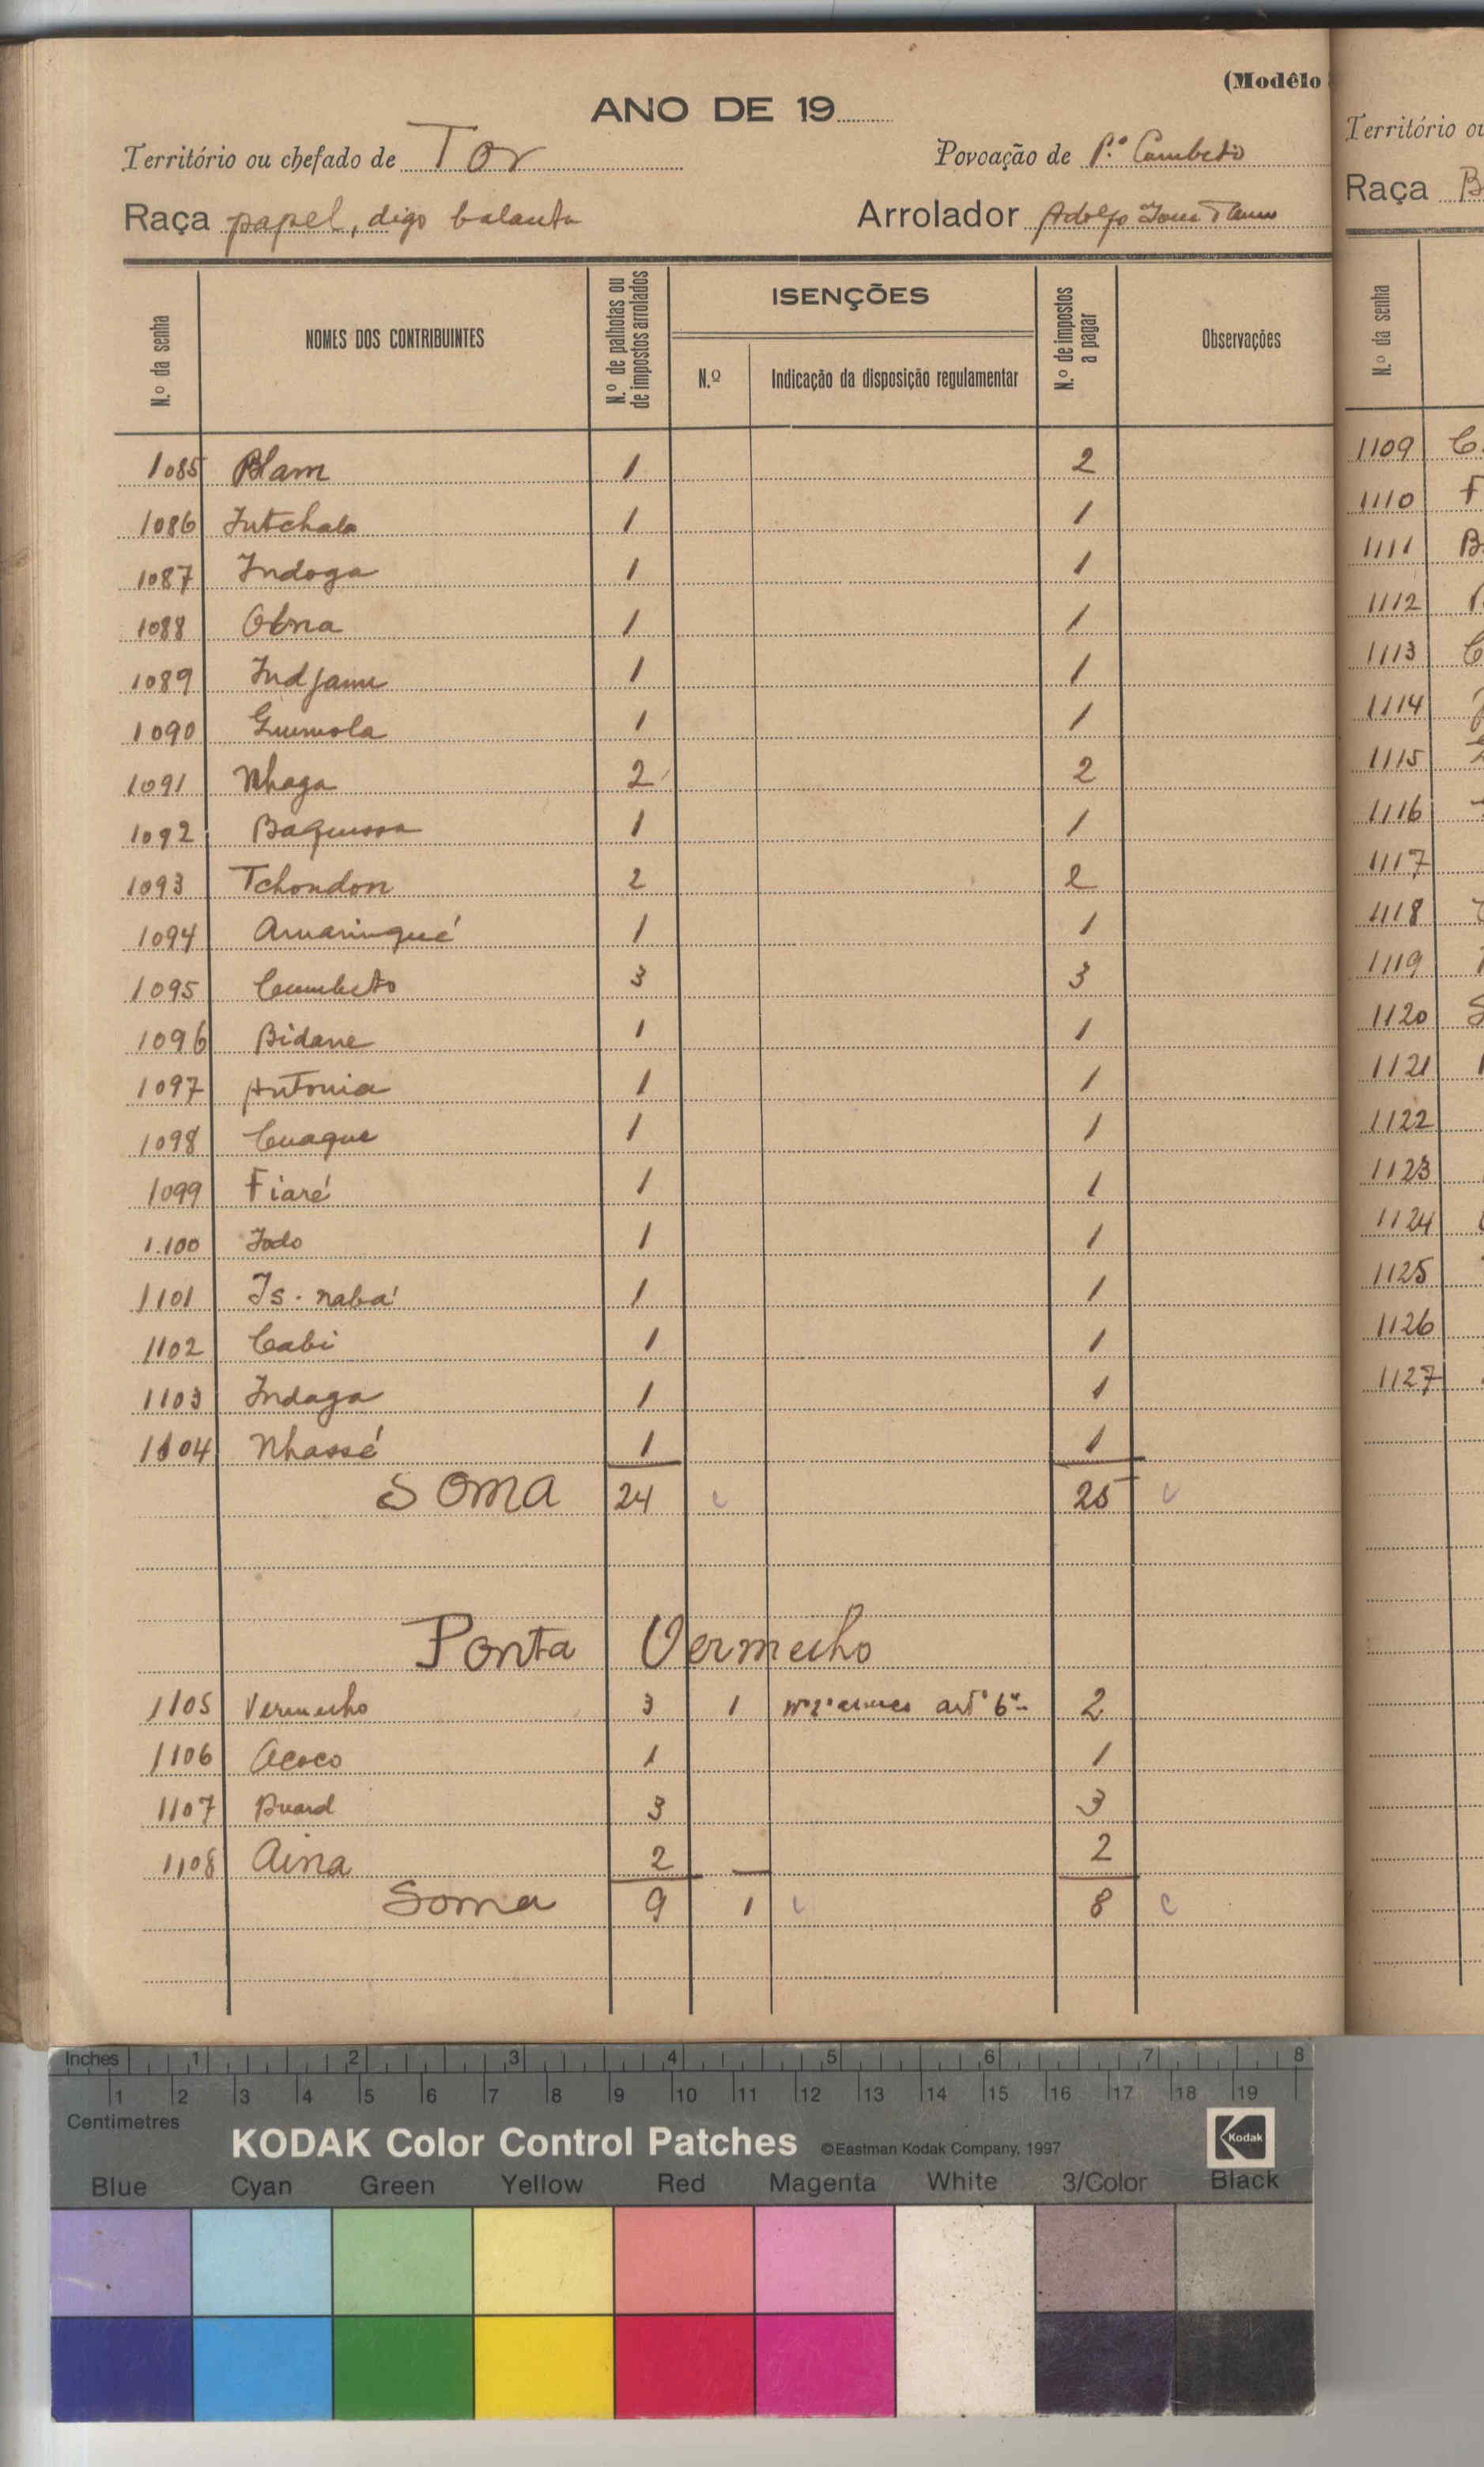 (Modêlo
ANO DE 19
Território ou chefado de Tor Povoação de P.ª Cumbeto
Raça papel, digo balanta Arrolador Adolfo
N.º da senha NOMES DOS CONTRIBUINTES N.º de palhotas ou de impostos arrolados ISENÇÕES N.º Indicação da disposição regulamentar N.º de impostos a pagar Observações
1085 Blam 1 2
1086 Intchala 1 1
1087 Indoga 1 1
1088 Obna 1 1
1089 Indjami 1 1
1090 1 1
1091 Nhaga 2 2
1092 1 1
1093 Tchondon 2 2
1094 Amarinqué 1 1
1095 Cumbeto 3 3
1096 Bidane 1 1
1097 Antonia 1 1
1098 Cuaque 1 1
1099 Fiaré 1 1
1.100 Jodo 1 1
1101 Is-nabá 1 1
1102 Cabi 1 1
1103 Indaga 1 1
1104 Nhassé 1 1
Soma 24 25
Ponta Vermelho
1105 Vermelho 3 1 artº 6º 2
1106 Acoco 1 1
1107 3 3
1108 Aina 2 — 2
Soma 9 1 8
Território ou
Raça B
N.º da senha
1109 C
1110 F
1111 B
1112
1113 C
1114
1115
1116
1117
1118
1119
1120 S
1121
1122
1123
1124
1125
1126
1127
Inches 1 2 3 4 5 6 7 8
1 2 3 4 5 6 7 8 9 10 11 12 13 14 15 16 17 18 19
Centimetres
KODAK Color Control Patches ©Eastman Kodak Company, 1997 Kodak
Blue Cyan Green Yellow Red Magenta White 3/Color Black